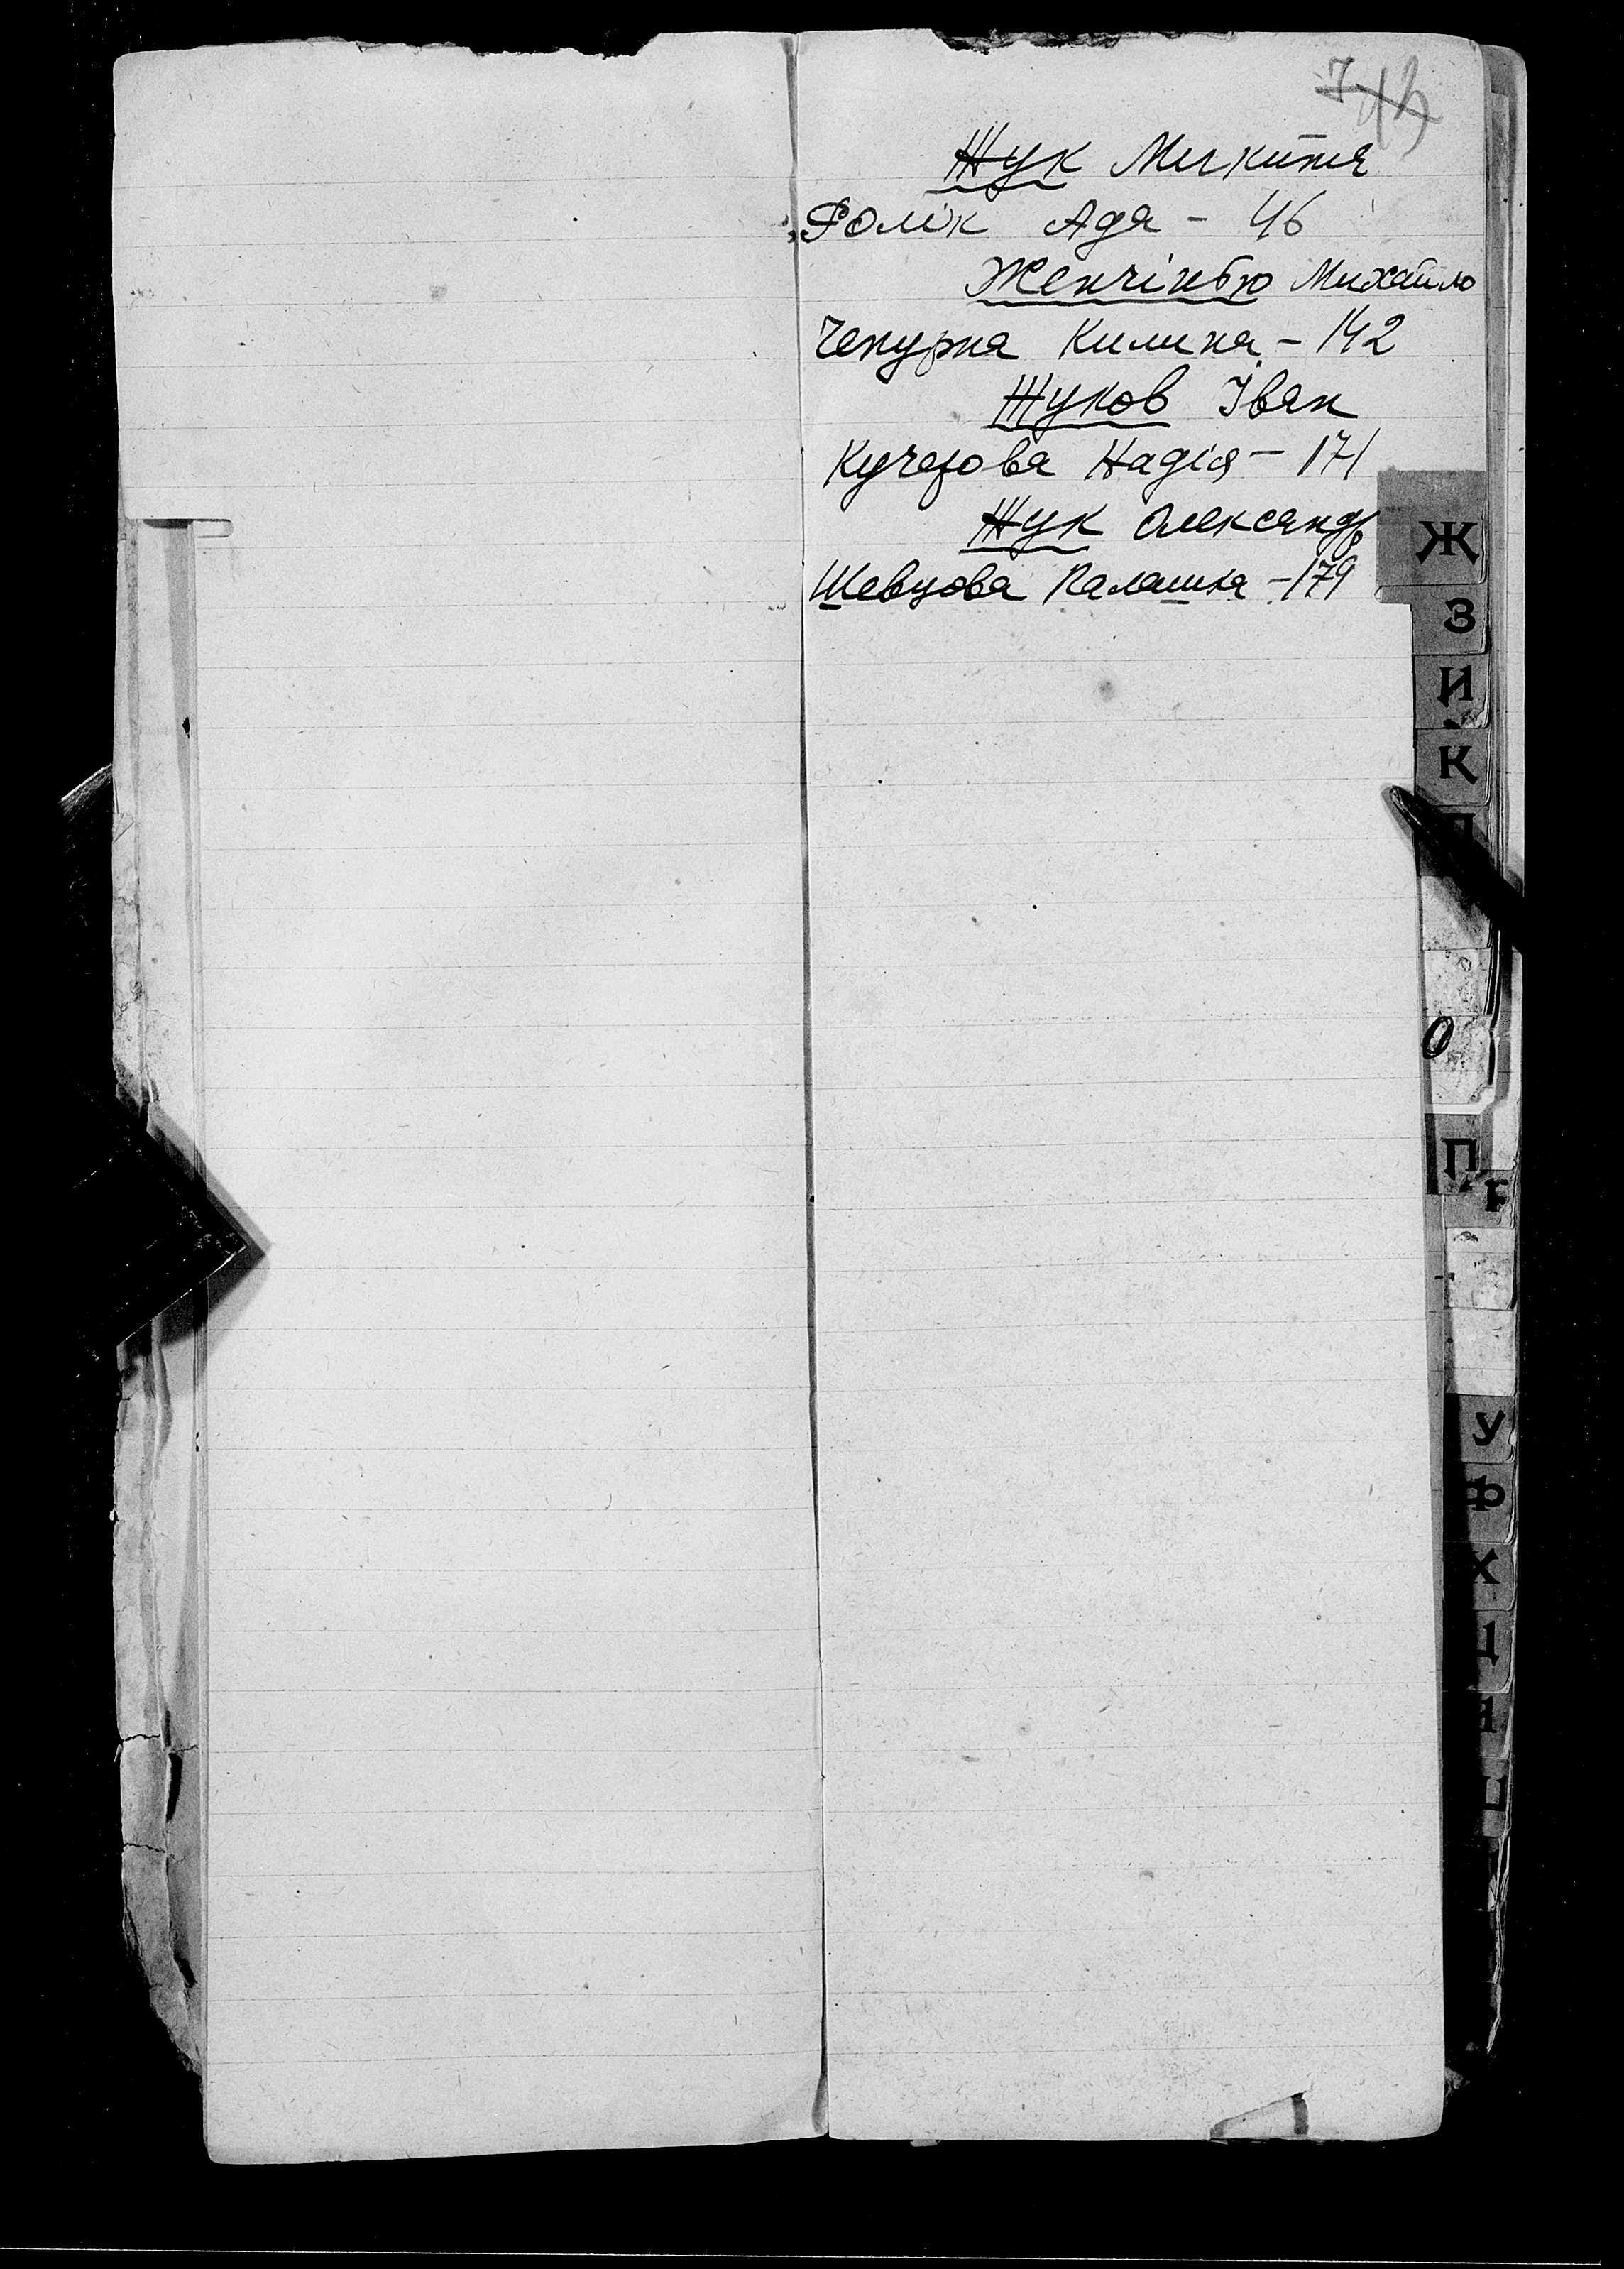 Жук Микита
Ролік Адя - 46
Женчінбю Михайло
Чепурна Килина - 142
Жуков Іван
Кучерова Надія - 171
Жук Олександр
Шевцова Палашка - 179
Ж
З
И
К
О
П
У
Ф
Х